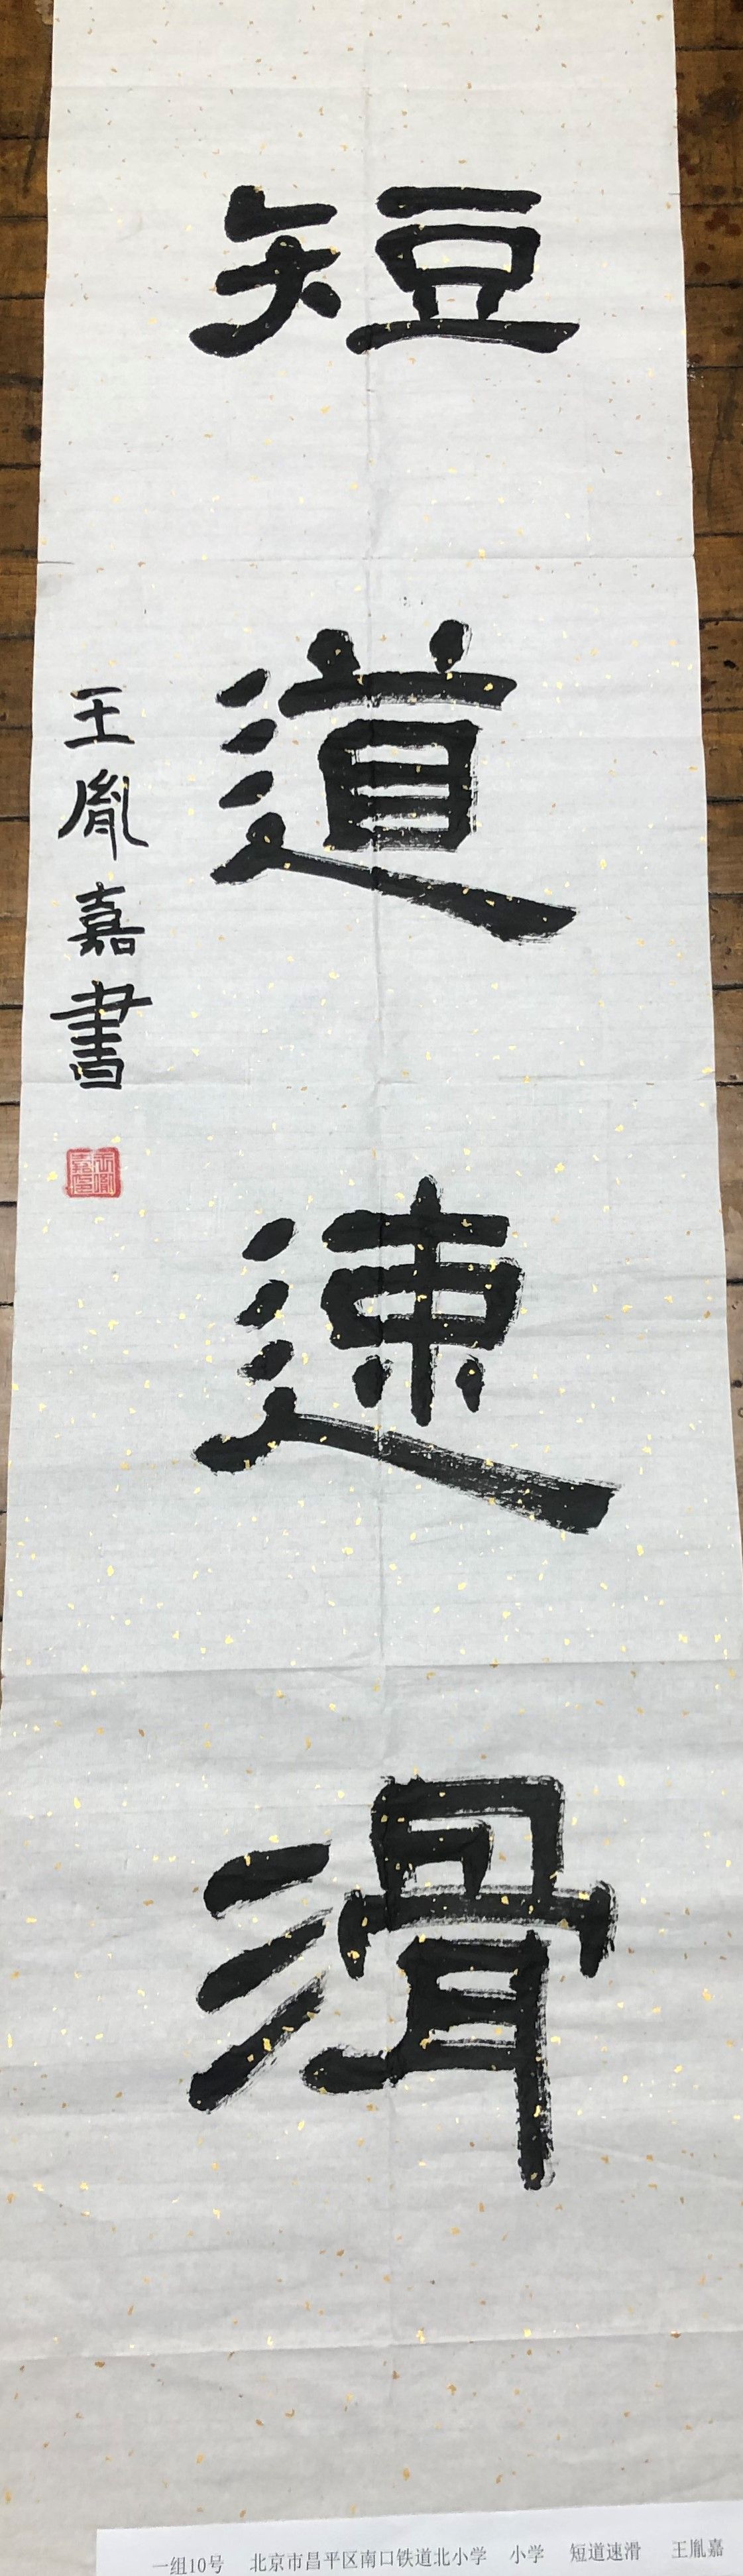 短道速滑
王胤嘉書
一组10号 北京市昌平区南口铁道北小学 小学 短道速滑 王胤嘉